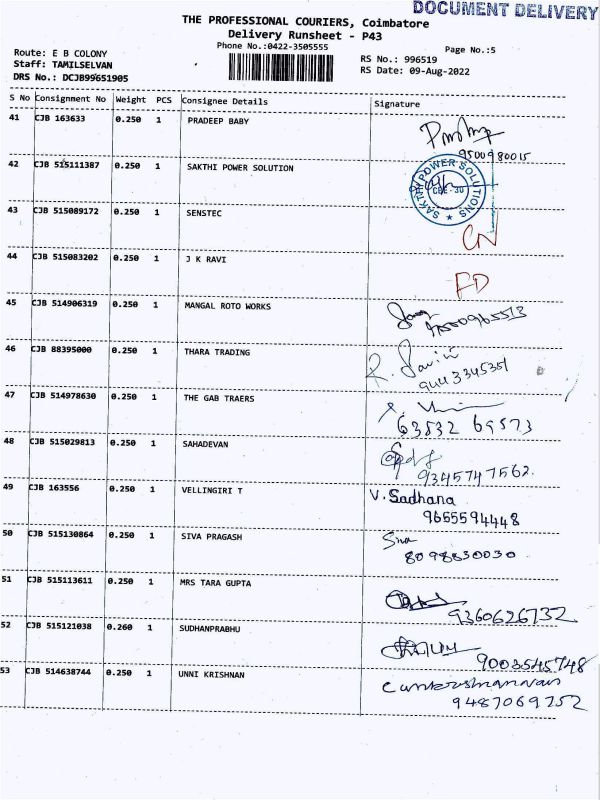 DOCUMENT DELIVERY
THE PROFESSIONAL COURIERS, Coimbatore
Delivery Runsheet - P43
Phone No.:0422-3505555
Page No.:5
Route: E B COLONY
Staff: TAMILSELVAN
DRS No.: DCJB99651905
RS No.: 996519
RS Date: 09-Aug-2022
S No Consignment No Weight PCS Consignee Details Signature
41 CJB 163633 0.250 1 PRADEEP BABY
9500980015
42 CJB 515111387 0.250 1 SAKTHI POWER SOLUTION
SAKTHI POWER SOLUTIONS
43 CJB 515089172 0.250 1 SENSTEC
CN
44 CJB 515083202 0.250 1 J K RAVI
FD
45 CJB 514906319 0.250 1 MANGAL ROTO WORKS
46 CJB 88395000 0.250 1 THARA TRADING
9443345351
47 CJB 514978630 0.250 1 THE GAB TRAERS
63832 69573
48 CJB 515029813 0.250 1 SAHADEVAN
9345747562.
49 CJB 163556 0.250 1 VELLINGIRI T
V. Sadhana
9655594448
50 CJB 515130864 0.250 1 SIVA PRAGASH
Siva
8098830030
51 CJB 515113611 0.250 1 MRS TARA GUPTA
9360626732
52 CJB 515121038 0.260 1 SUDHANPRABHU
9003545748
53 CJB 514638744 0.250 1 UNNI KRISHNAN
9487069752